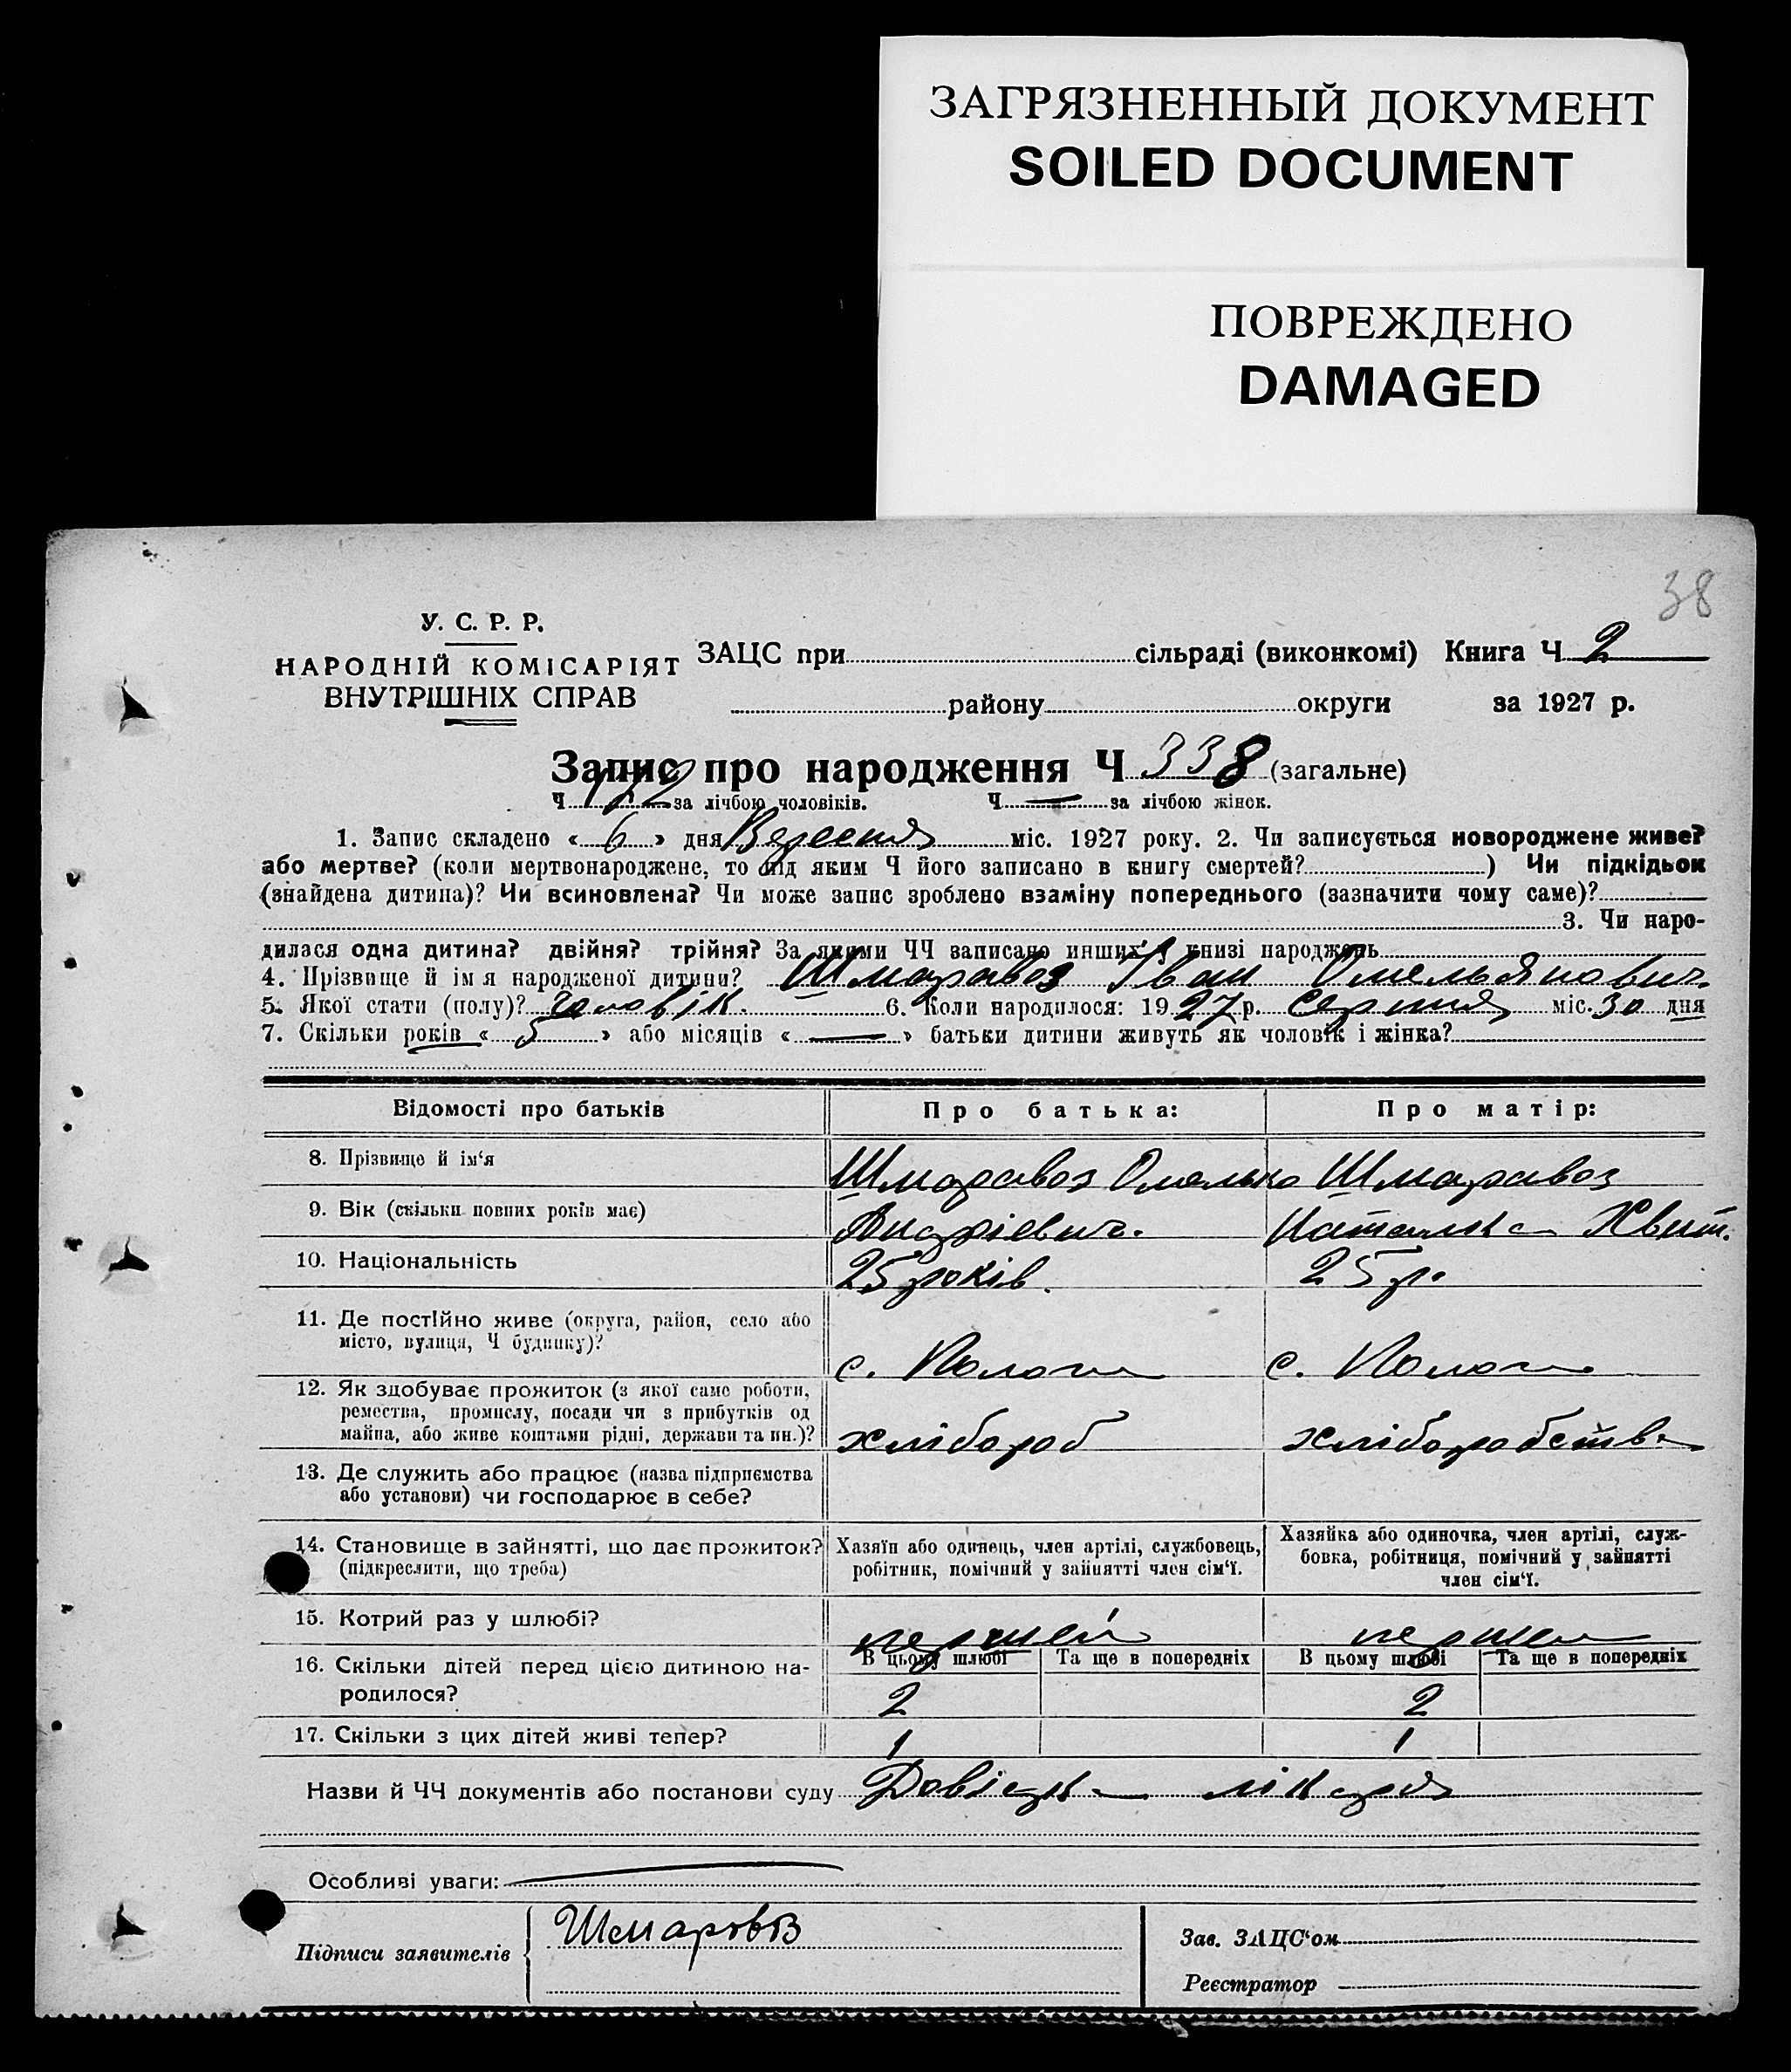 ЗАГРЯЗНЕННЫЙ ДОКУМЕНТ
SOILED DOCUMENT
ПОВРЕЖДЕНО
DAMAGED
38
У. С. Р. Р.
НАРОДНІЙ КОМІСАРІЯТ
ВНУТРІШНІХ СПРАВ
ЗАЦС при сільраді (виконкомі) Книга Ч 2
району округи за 1927 р.
Запис про народження Ч 338 (загальне)
Ч 172 за лічбою чоловіків. Ч — за лічбою жінок.
1. Запис складено « 6 » дня Вересня міс. 1927 року. 2. Чи записується новороджене живе?
або мертве? (коли мертвонароджене, то під яким Ч його записано в книгу смертей? ) Чи підкідьок
(знайдена дитина)? Чи всиновлена? Чи може запис зроблено взаміну попереднього (зазначити чому саме)?
3. Чи наро-
дилася одна дитина? двійня? трійня? За якими ЧЧ записано инших у книзі народжень
4. Прізвище й ім я народженої дитини? Шмаравоз Іван Омельянович.
5. Якої стати (полу)? чоловік. 6. Коли народилося: 1927 р. серпня міс. 30 дня
7. Скільки років « 5 » або місяців « — » батьки дитини живуть як чоловік і жінка?
Відомості про батьків Про батька: Про матір:
8. Прізвище й ім‘я Шмаравоз Омелько Шмаравоз
9. Вік (скільки повних років має) Андрієвич. Наталка Хвит.
10. Національність 25 років. 25 р.
11. Де постійно живе (округа, район, село або
місто, вулиця, Ч будинку)? с. Пологи с. Пологи
12. Як здобуває прожиток (з якої саме роботи,
ремества, промислу, посади чи з прибутків од
майна, або живе коштами рідні, держави та ин.)? хлібороб хліборобство
13. Де служить або працює (назва підприємства
або установи) чи господарює в себе?
14. Становище в зайнятті, що дає прожиток?
(підкреслити, що треба)
Хазяїн або одинець, член артілі, службовець,
робітник, помічний у зайнятті член сім‘ї.
Хазяйка або одиночка, член артілі, служ-
бовка, робітниця, помічний у зайнятті
член сім‘ї.
15. Котрий раз у шлюбі? перший перше
16. Скільки дітей перед цією дитиною на-
родилося?
В цьому шлюбі Та ще в попередніх В цьому шлюбі Та ще в попередніх
2 2
17. Скільки з цих дітей живі тепер? 1 1
Назви й ЧЧ документів або постанови суду Довідка лікаря
Особливі уваги:
Підписи заявителів Шмаровоз
Зав. ЗАЦС‘ом
Реєстратор